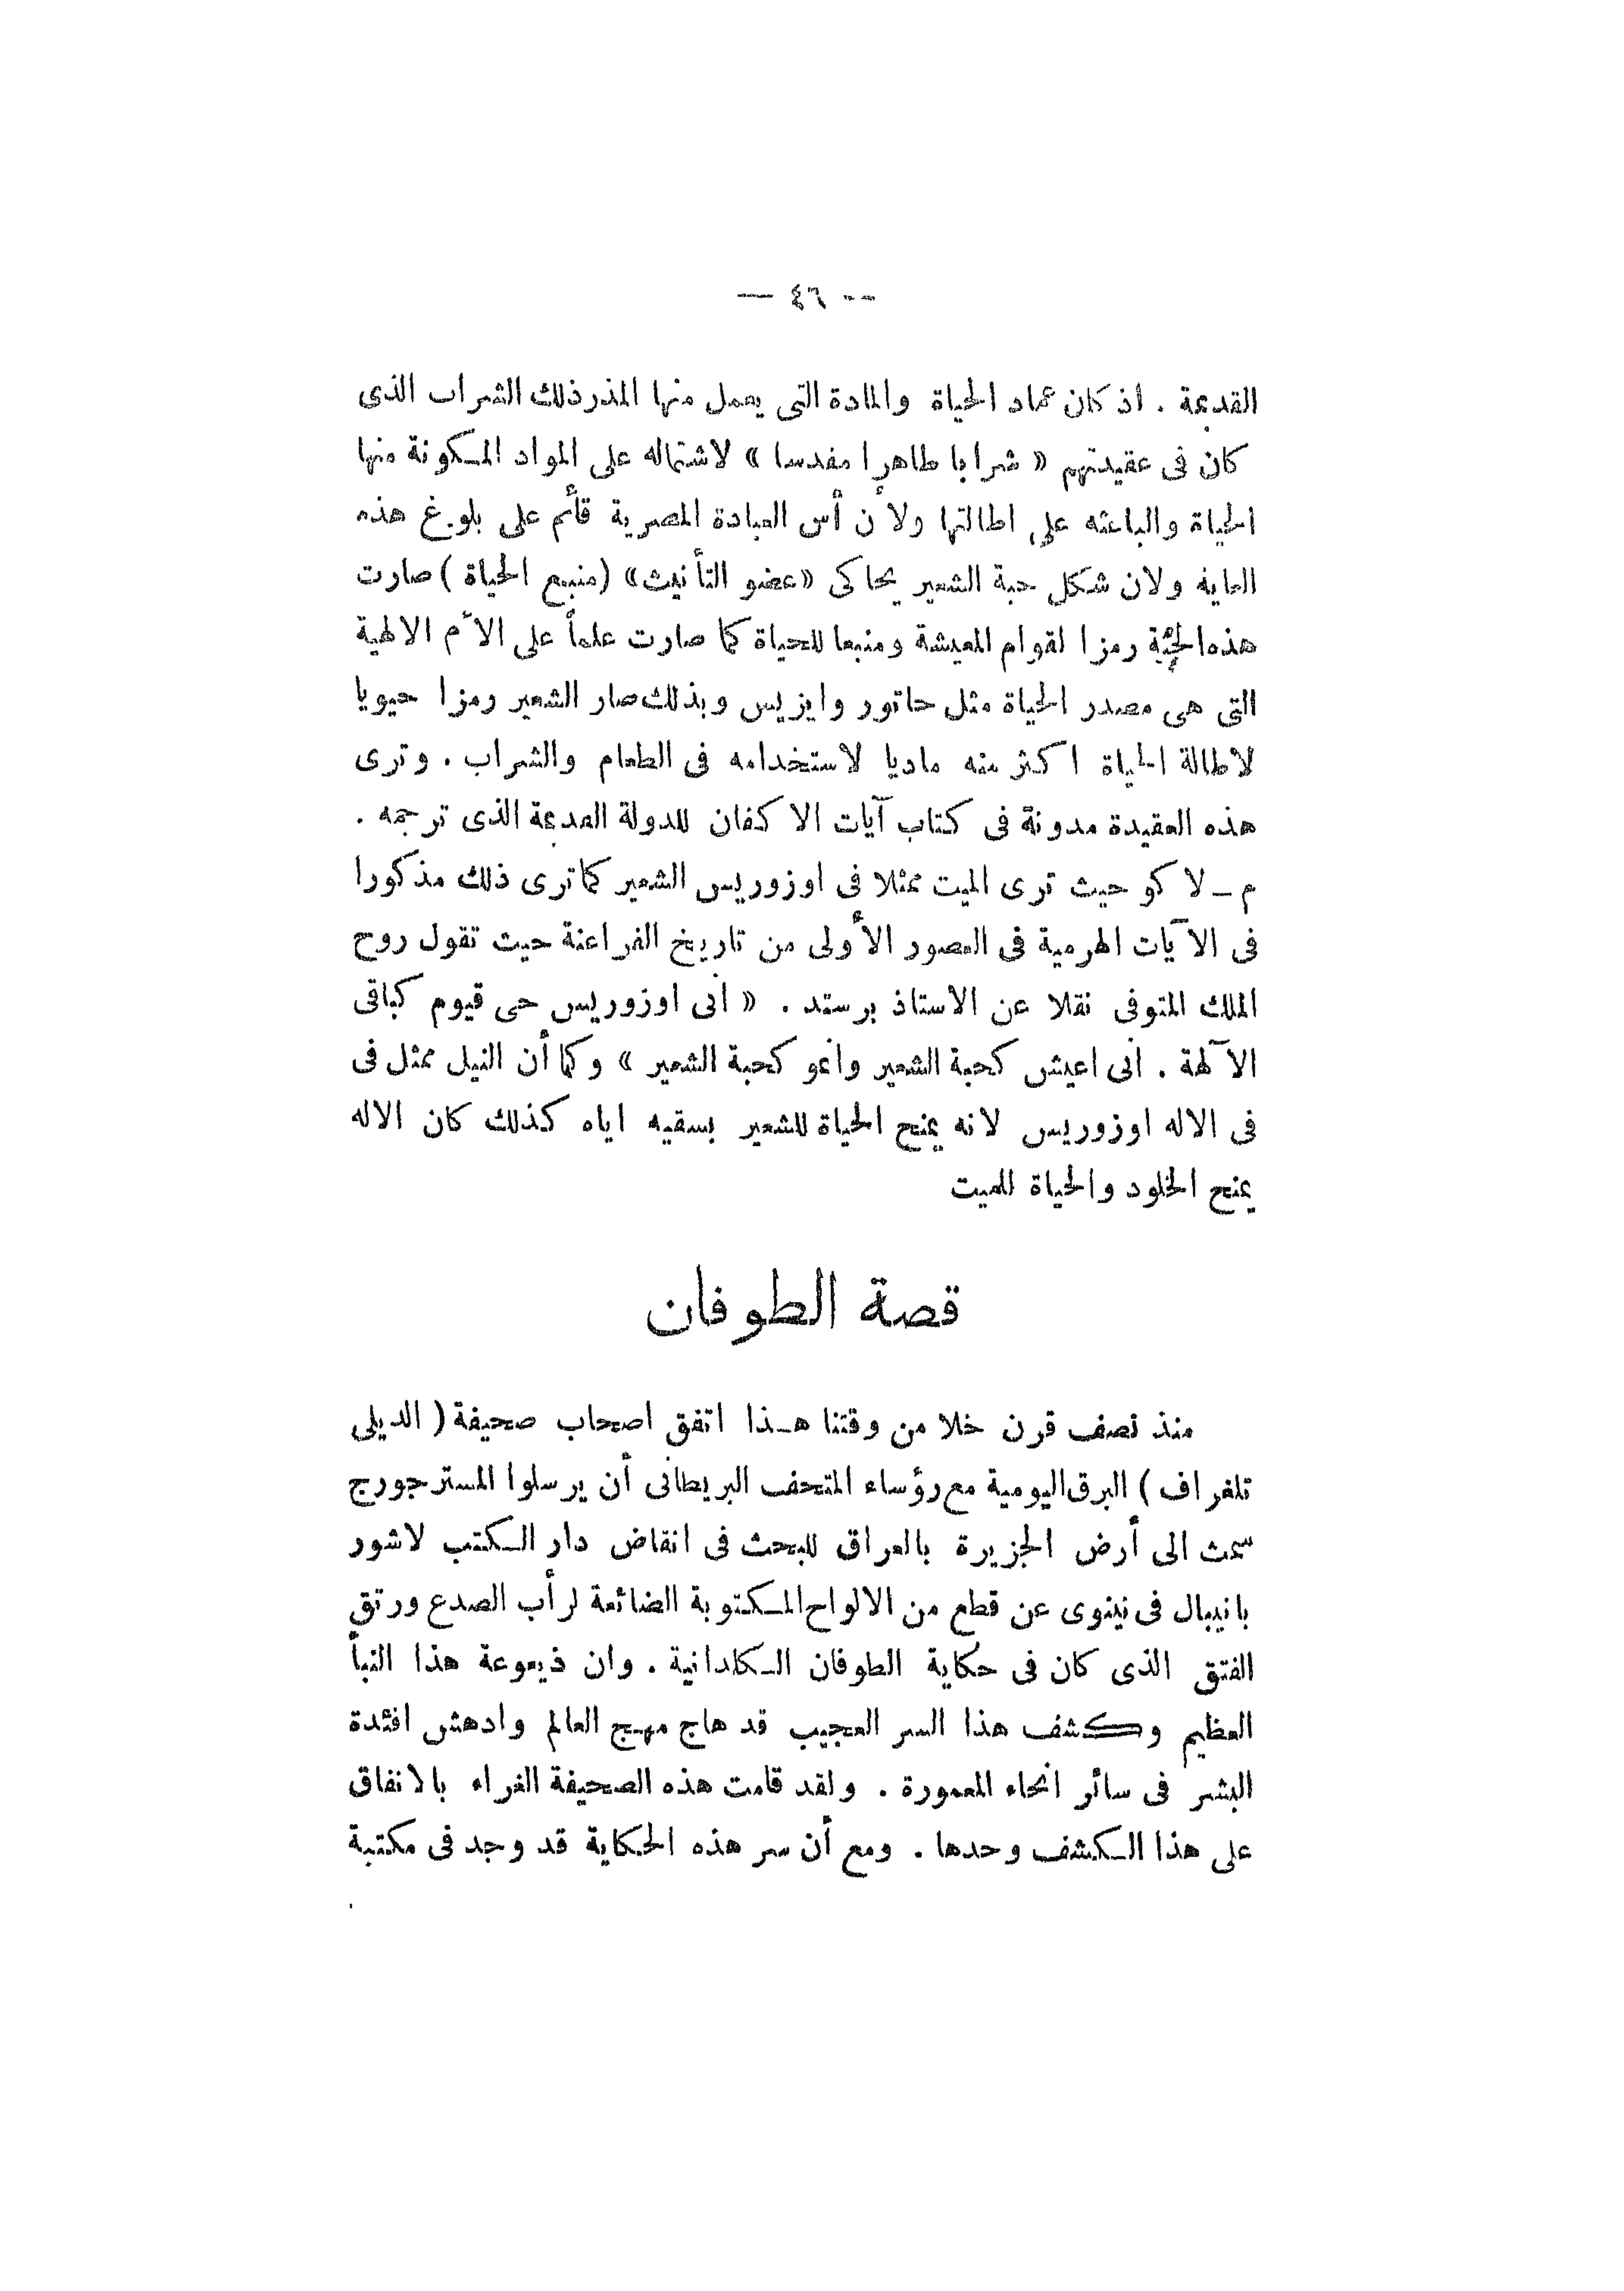 — ٤٦ —
القديمة . اذ كان عماد الحياة والمادة التى يعمل منها المذر ذلك الشراب الذى
كان فى عقيدتهم « شرابا طاهرا مقدسا » لاشتماله على المواد المكونة منها
الحياة والباعثه على اطالتها ولأن أس العبادة المصرية قائم على بلوغ هذه
الغايه ولان شكل حبة الشعير يحاكى «عضو التأنيث» (منبع الحياة) صارت
هذه الحبة رمزا لقوام المعيشة ومنبعا للحياة كما صارت علماً على الأم الالهية
التى هى مصدر الحياة مثل حاتور وايزيس وبذلك صار الشعير رمزا حيويا
لاطالة الحياة اكثر منه ماديا لاستخدامه فى الطعام والشراب . وترى
هذه العقيدة مدونة فى كتاب آيات الاكفان للدولة القديمة الذى ترجمه .
م ــ لاكو حيث ترى الميت ممثلا فى اوزوريس الشعير كما ترى ذلك مذكورا
فى الآيات الهرمية فى العصور الأولى من تاريخ الفراعنة حيث تقول روح
الملك المتوفى نقلا عن الاستاذ برستد . « انى اوزوريس حى قيوم كباقى
الآلهة . انى اعيش كحبة الشعير وانمو كحبة الشعير » وكما أن النيل ممثل فى
فى الاله اوزوريس لانه يمنح الحياة للشعير بسقيه اياه كذلك كان الاله
يمنح الخلود والحياة للميت
قصة الطوفان
منذ نصف قرن خلا من وقتنا هذا اتفق اصحاب صحيفة ( الديلى
تلغراف ) البرق اليومية مع رؤساء المتحف البريطانى أن يرسلوا المستر جورج
سمث الى أرض الجزيرة بالعراق للبحث فى انقاض دار الكتب لاشور
بانيبال فى نينوى عن قطع من الالواح المكتوبة الضائعة لرأب الصدع ورتق
الفتق الذى كان فى حكاية الطوفان الكلدانية . وان ذيعوعة هذا النبأ
العظيم وكشف هذا السر العجيب قد هاج مهج العالم وادهش افئدة
البشر فى سائر انحاء المعمورة . ولقد قامت هذه الصحيفة الغراء بالانفاق
على هذا الكشف وحدها . ومع أن سر هذه الحكاية قد وجد فى مكتبة